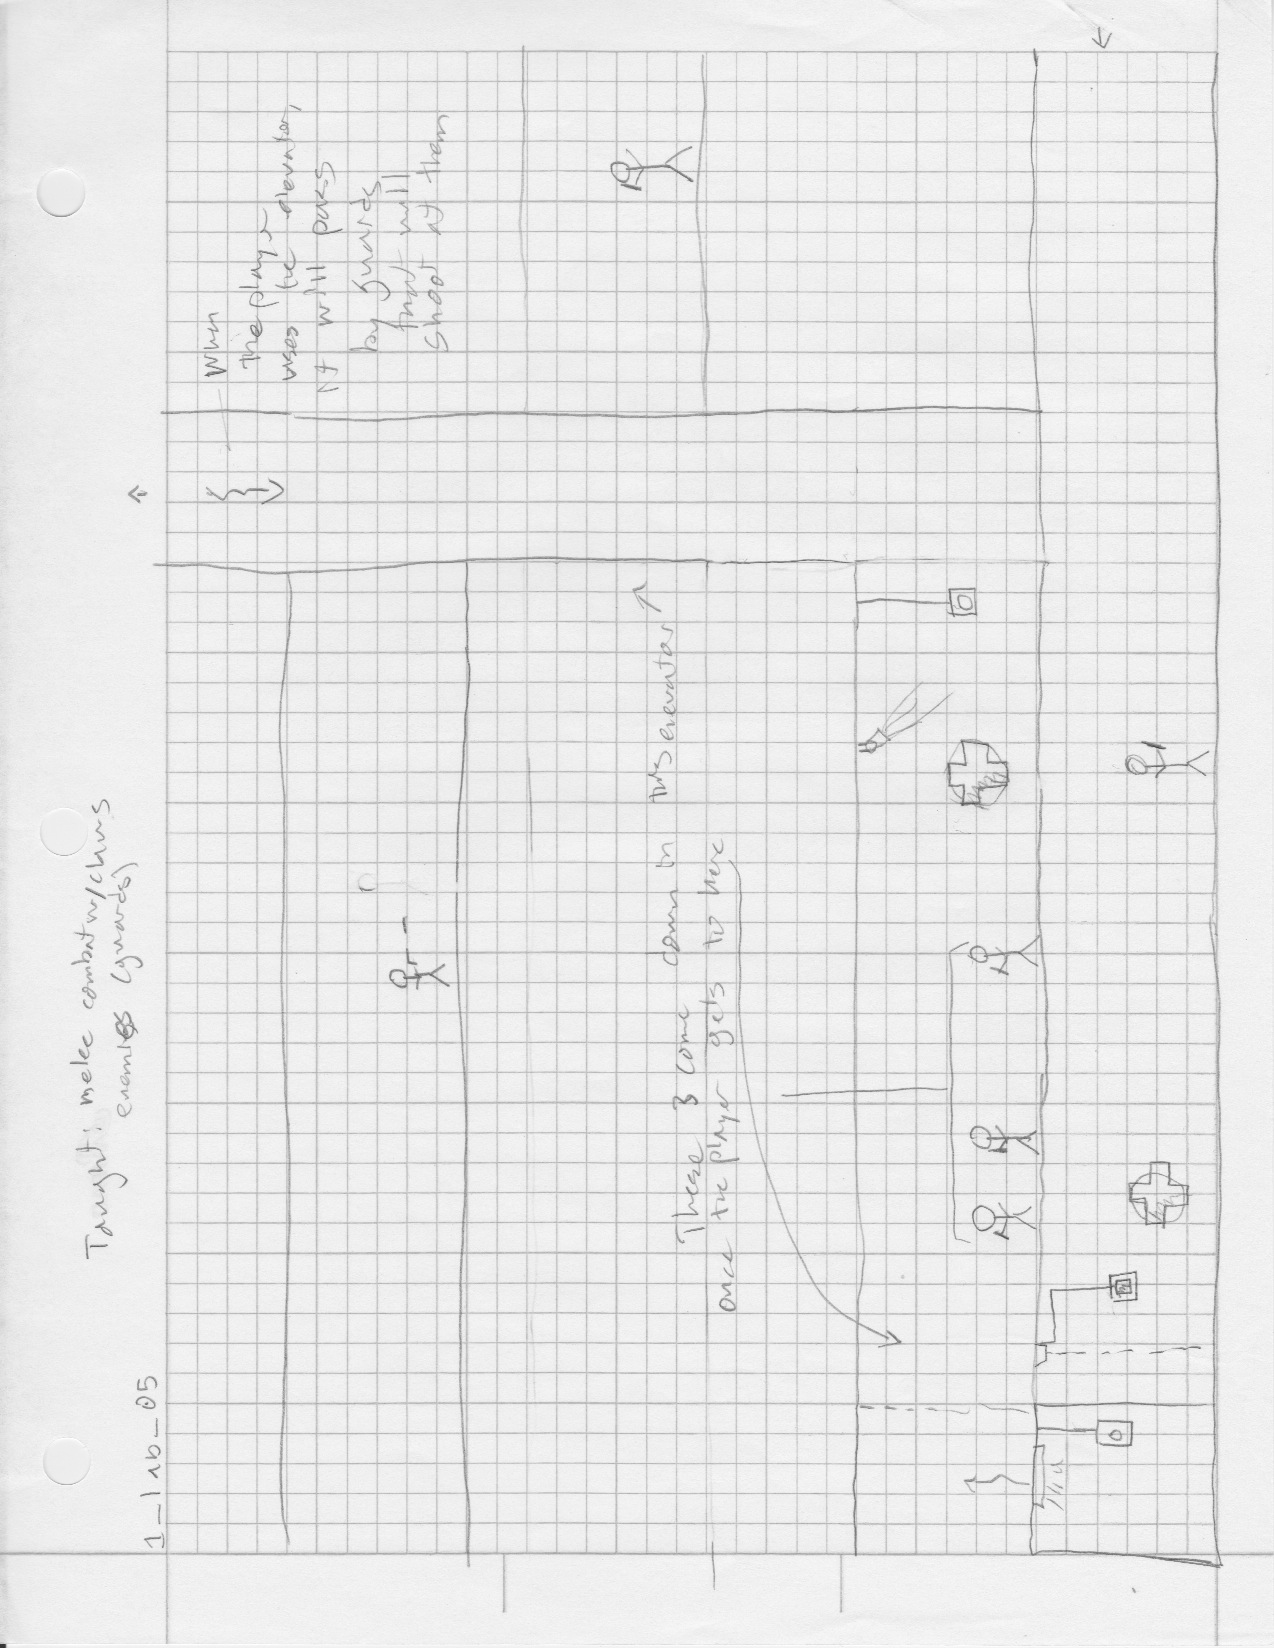 Taught: melee combat w/claws
enemies (guards)
1_lab_05
When
the player
uses the elevator,
it will pass
by guards
that will
shoot at them
These 3 come down in this elevator
once the player gets to here